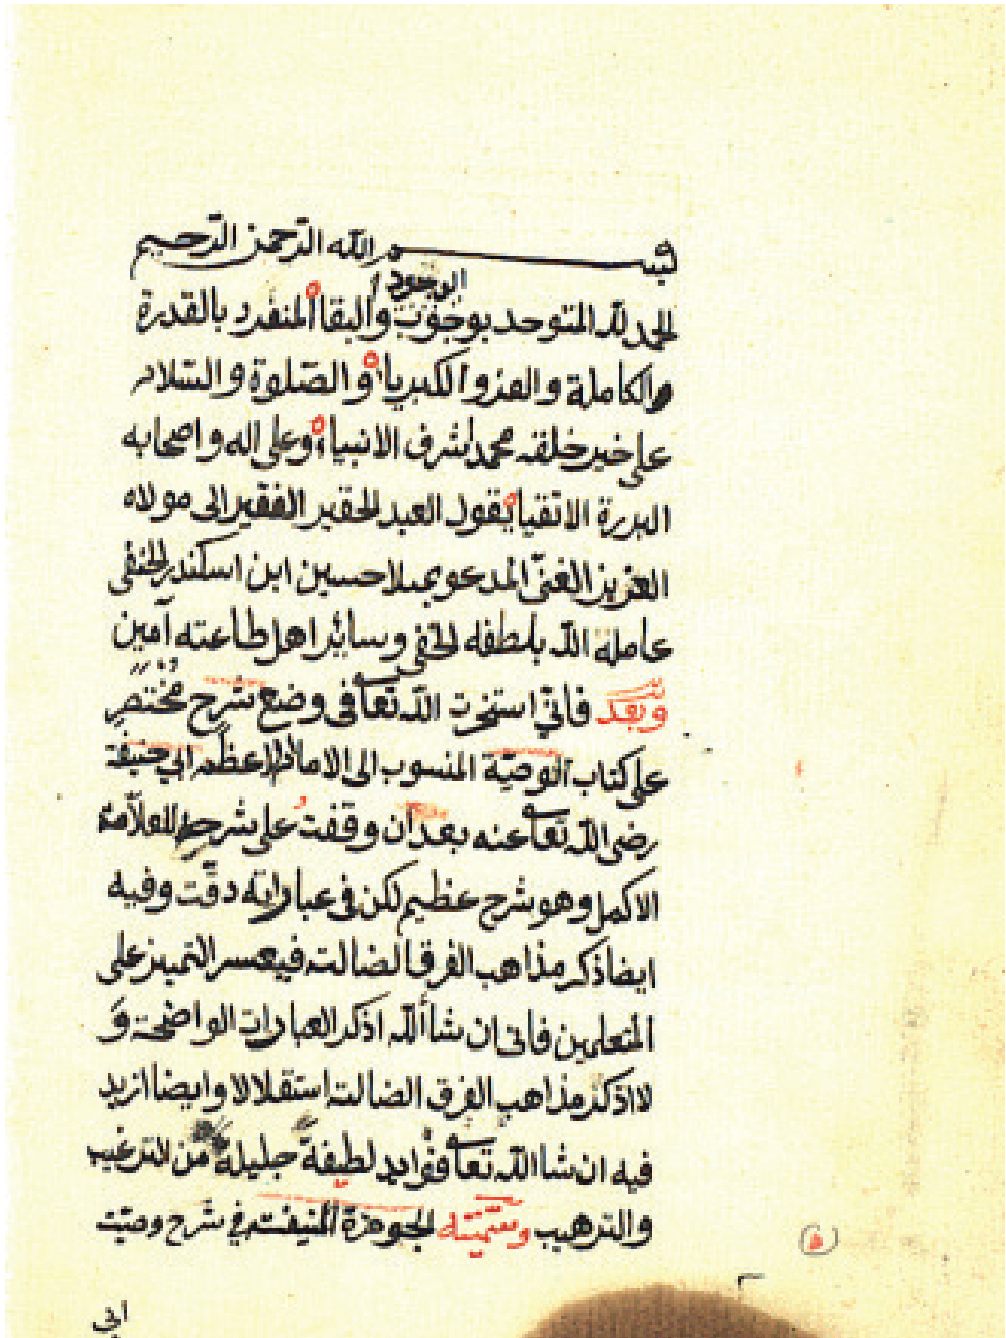 بسم الله الرحمن الرحيم
الوجود
الحمد لله المتوحد بوجوب والبقا المنفرد بالقدرة
الكاملة والعز والكبرياء والصلوة والسلام
على خير خلقه محمد اشرف الانبياء وعلى اله واصحابه
البررة الاتقياء يقول العبد الحقير الفقير الى مولاه
العزيز الغنىّ المدعو بملا حسين ابن اسكندر الحنفى
عامله الله بلطفه الخفى وسائر اهل طاعته آمين
وبعد فانى استخرت الله تعا فى وضع شرح مختصر
على كتاب الوصيّة المنسوب الى الامام الاعظم ابي حنيفة
رضى الله تعا عنه بعد ان وقفت على شرحه للعلاّمة
الاكمل وهو شرح عظيم لكن فى عباراته دقّت وفيه
ايضا ذكر مذاهب الفرق الضالت فيعسر التميز على
المتعلمين فانى ان شا الله اذكر العبارات الواضحة وَ
لا اذكر مذاهب الفرق الضالت استقلالا وايضا ازيد
فيه ان شا الله تعا فوايد لطيفة جليلة من الترغيب
والترهيب وسمّيته الجوهرة المنيفت في شرح وصيّت
ابي